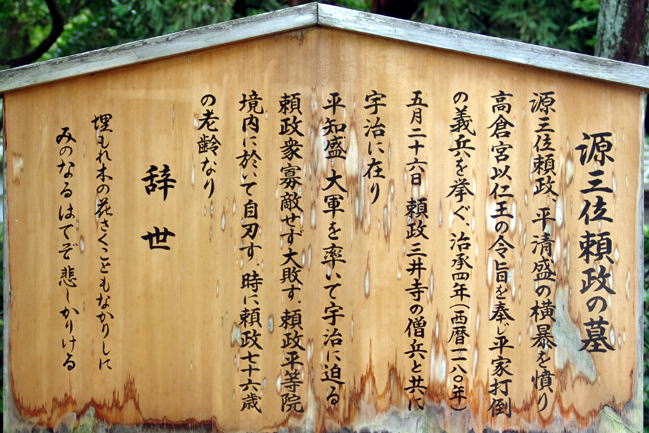 源三位頼政の墓
源三位頼政、平清盛の横暴を憤り
高倉宮以仁王の令旨を奉じ平家打倒
の義兵を挙ぐ、治承四年(西暦一一八〇年)
五月二十六日 頼政 三井寺の僧兵と共に
宇治に在り
平知盛 大軍を率いて宇治に迫る
頼政衆寡敵せず大敗す、頼政平等院
境内に於いて自刃す、時に頼政七十六歳
の老齢なり
辞世
埋もれ木の花さくこともなかりしに
みのなるはてぞ悲しかりける